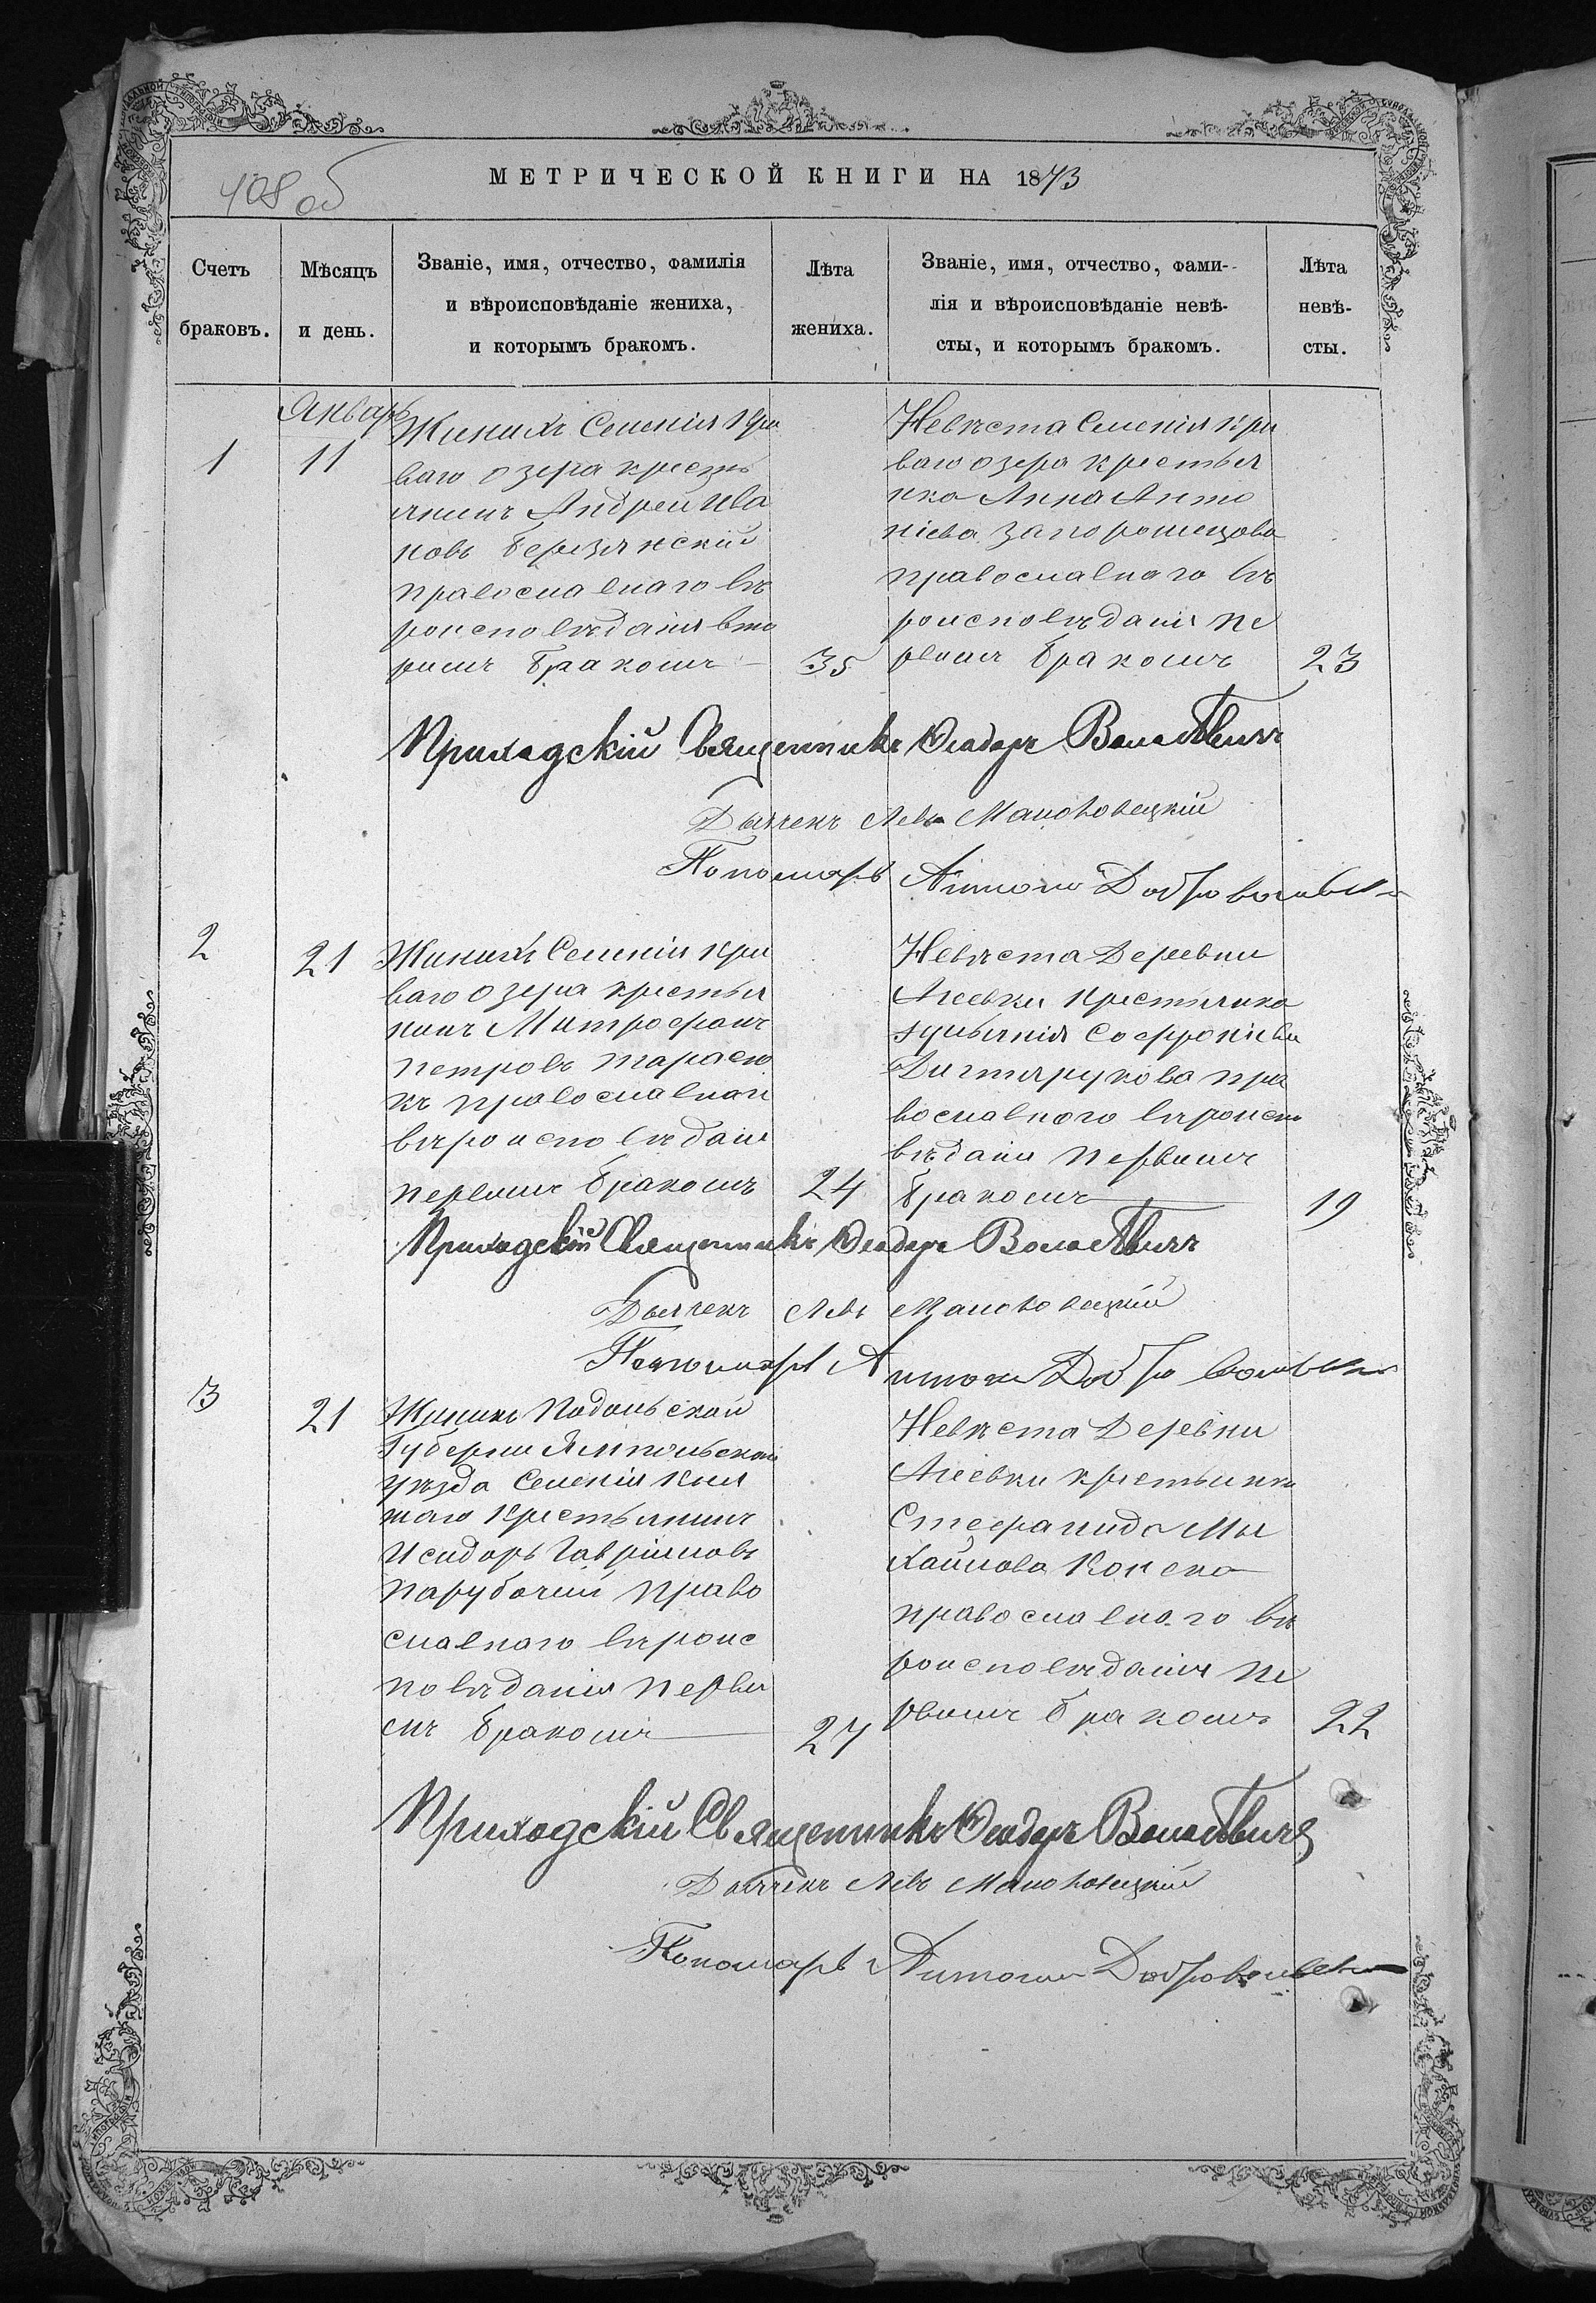 408 об
МЕТРИЧЕСКОЙ КНИГИ НА 1873
Счетъ
браковъ.
Мѣсяцъ
и день.
Званіе, имя, отчество, фамилія
и вѣроисповѣданіе жениха,
и которымъ бракомъ.
Лѣта
жениха.
Званіе, имя, отчество, фами-
лія и вѣроисповѣданіе невѣ-
сты, и которымъ бракомъ.
Лѣта
невѣ-
сты.
Январь
1
11
Жинихъ Селенія Кри
ваго озера кресть
янинъ Андрей Ива
новъ Березянскій
православнаго вѣ
роисповѣданія вто
римъ бракомъ
35
Невѣста Селенія Кри
ваго озера крестья
нка Анна Анто
ніева Запорошецова
православнаго вѣ
роисповѣданія пе
рвимъ бракомъ
23
Приходскій Священникъ Ѳеодоръ
Дьячекъ Левъ Маньковецкій
Пономарь Антоній Добровольскі
2
21
Жинихъ Селенія Кри
ваго озера крестья
нинъ Митрофанъ
Петровъ Тарасю
къ православнаго
вѣроисповѣданія
первимъ бракомъ
24
Невѣста Деревни
Агеевки крестянка
Гульянія Софроніева
Дигтярукова пра
вославнаго вѣроиспо
вѣданія первимъ
бракомъ
19
Приходскій Священникъ Ѳеодоръ
Дьячекъ Левъ Маньковецкій
Пономарь Антоній Добровольскі
3
21
Жинихъ Подольской
Губерніи Ямпольскаго
уѣзда Селенія Кня
жаго Крестьянинъ
Исидоръ Гавріиловъ
Парубочій право
славнаго вѣроис
повѣданія перви
мъ бракомъ
27
Невѣста Деревни
Агеевки крестьянка
Стефанида Ми
хайлова
православнаго вѣ
роисповѣданія пе
рвимъ бракомъ
22
Приходскій Священникъ Ѳеодоръ
Дьячекъ Левъ Маньковецкій
Пономарь Антоній Добровольскі